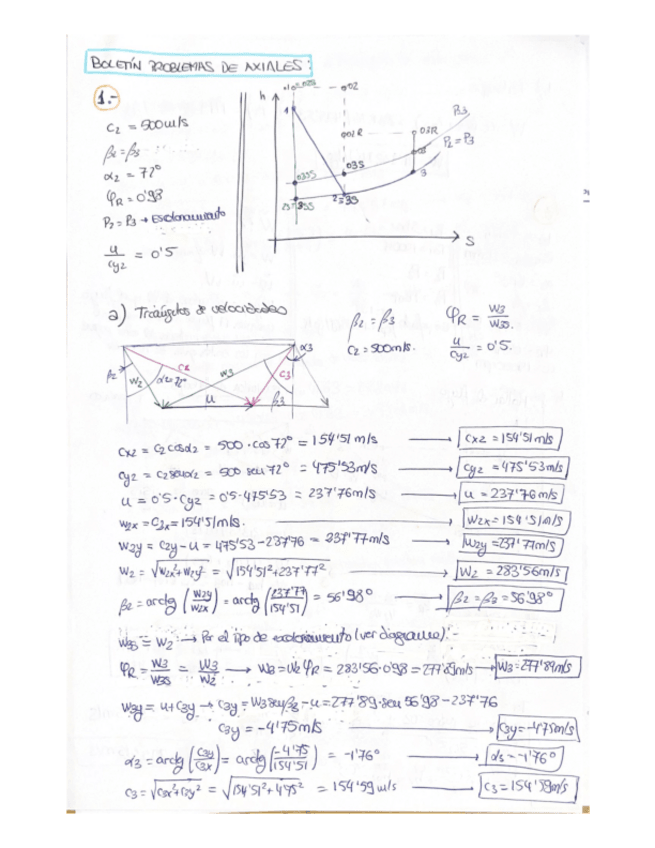 BOLETÍN PROBLEMAS DE AXIALES:
1.-
h
02
C2 = 500 m/s
β2 = β3
α2 = 72°
φR = 0'98
P2 = P3 → Escalonamiento
u/Cy2 = 0'5
1
02R
03R
P03
P2 = P3
03SS
03S
03
3
2=3S
S
a) Triángulos de velocidades
β2 = β3
C2 = 500 m/s.
φR = W3/W3S.
u/Cy2 = 0'5
α3
β2
W2
α2=72°
C2
W3
C3
β3
u
Cx2 = C2 cosα2 = 500 · cos 72° = 154'51 m/s → Cx2 = 154'51 m/s
Cy2 = C2 senα2 = 500 sen 72° = 475'53 m/s → Cy2 = 475'53 m/s
u = 0'5 · Cy2 = 0'5 · 475'53 = 237'76 m/s → u = 237'76 m/s
W2x = C2x = 154'51 m/s. → W2x = 154'51 m/s
W2y = C2y - u = 475'53 - 237'76 = 237'77 m/s → W2y = 237'77 m/s
W2 = √(W2x² + W2y²) = √(154'51² + 237'77²) → W2 = 283'56 m/s
β2 = arctg (W2y/W2x) = arctg (237'77/154'51) = 56'98° → β2 = β3 = 56'98°
W3S = W2 → Por el tipo de escalonamiento (ver diagrama).-
φR = W3/W3S = W3/W2 → W3 = W2 φR = 283'56 · 0'98 = 277'89 m/s → W3 = 277'89 m/s
W3y = u + C3y → C3y = W3 senβ3 - u = 277'89 · sen 56'98 - 237'76
C3y = -4'75 m/s → C3y = -4'75 m/s
α3 = arctg (C3y/C3x) = arctg (-4'75/154'51) = -1'76° → α3 = -1'76°
C3 = √(C3x² + C3y²) = √(154'51² + 4'75²) = 154'59 m/s → C3 = 154'59 m/s